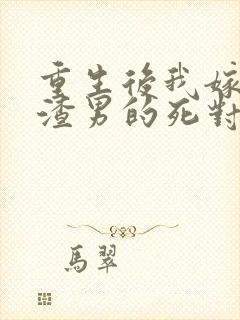 重生後我嫁
渣男的死對
馬翠